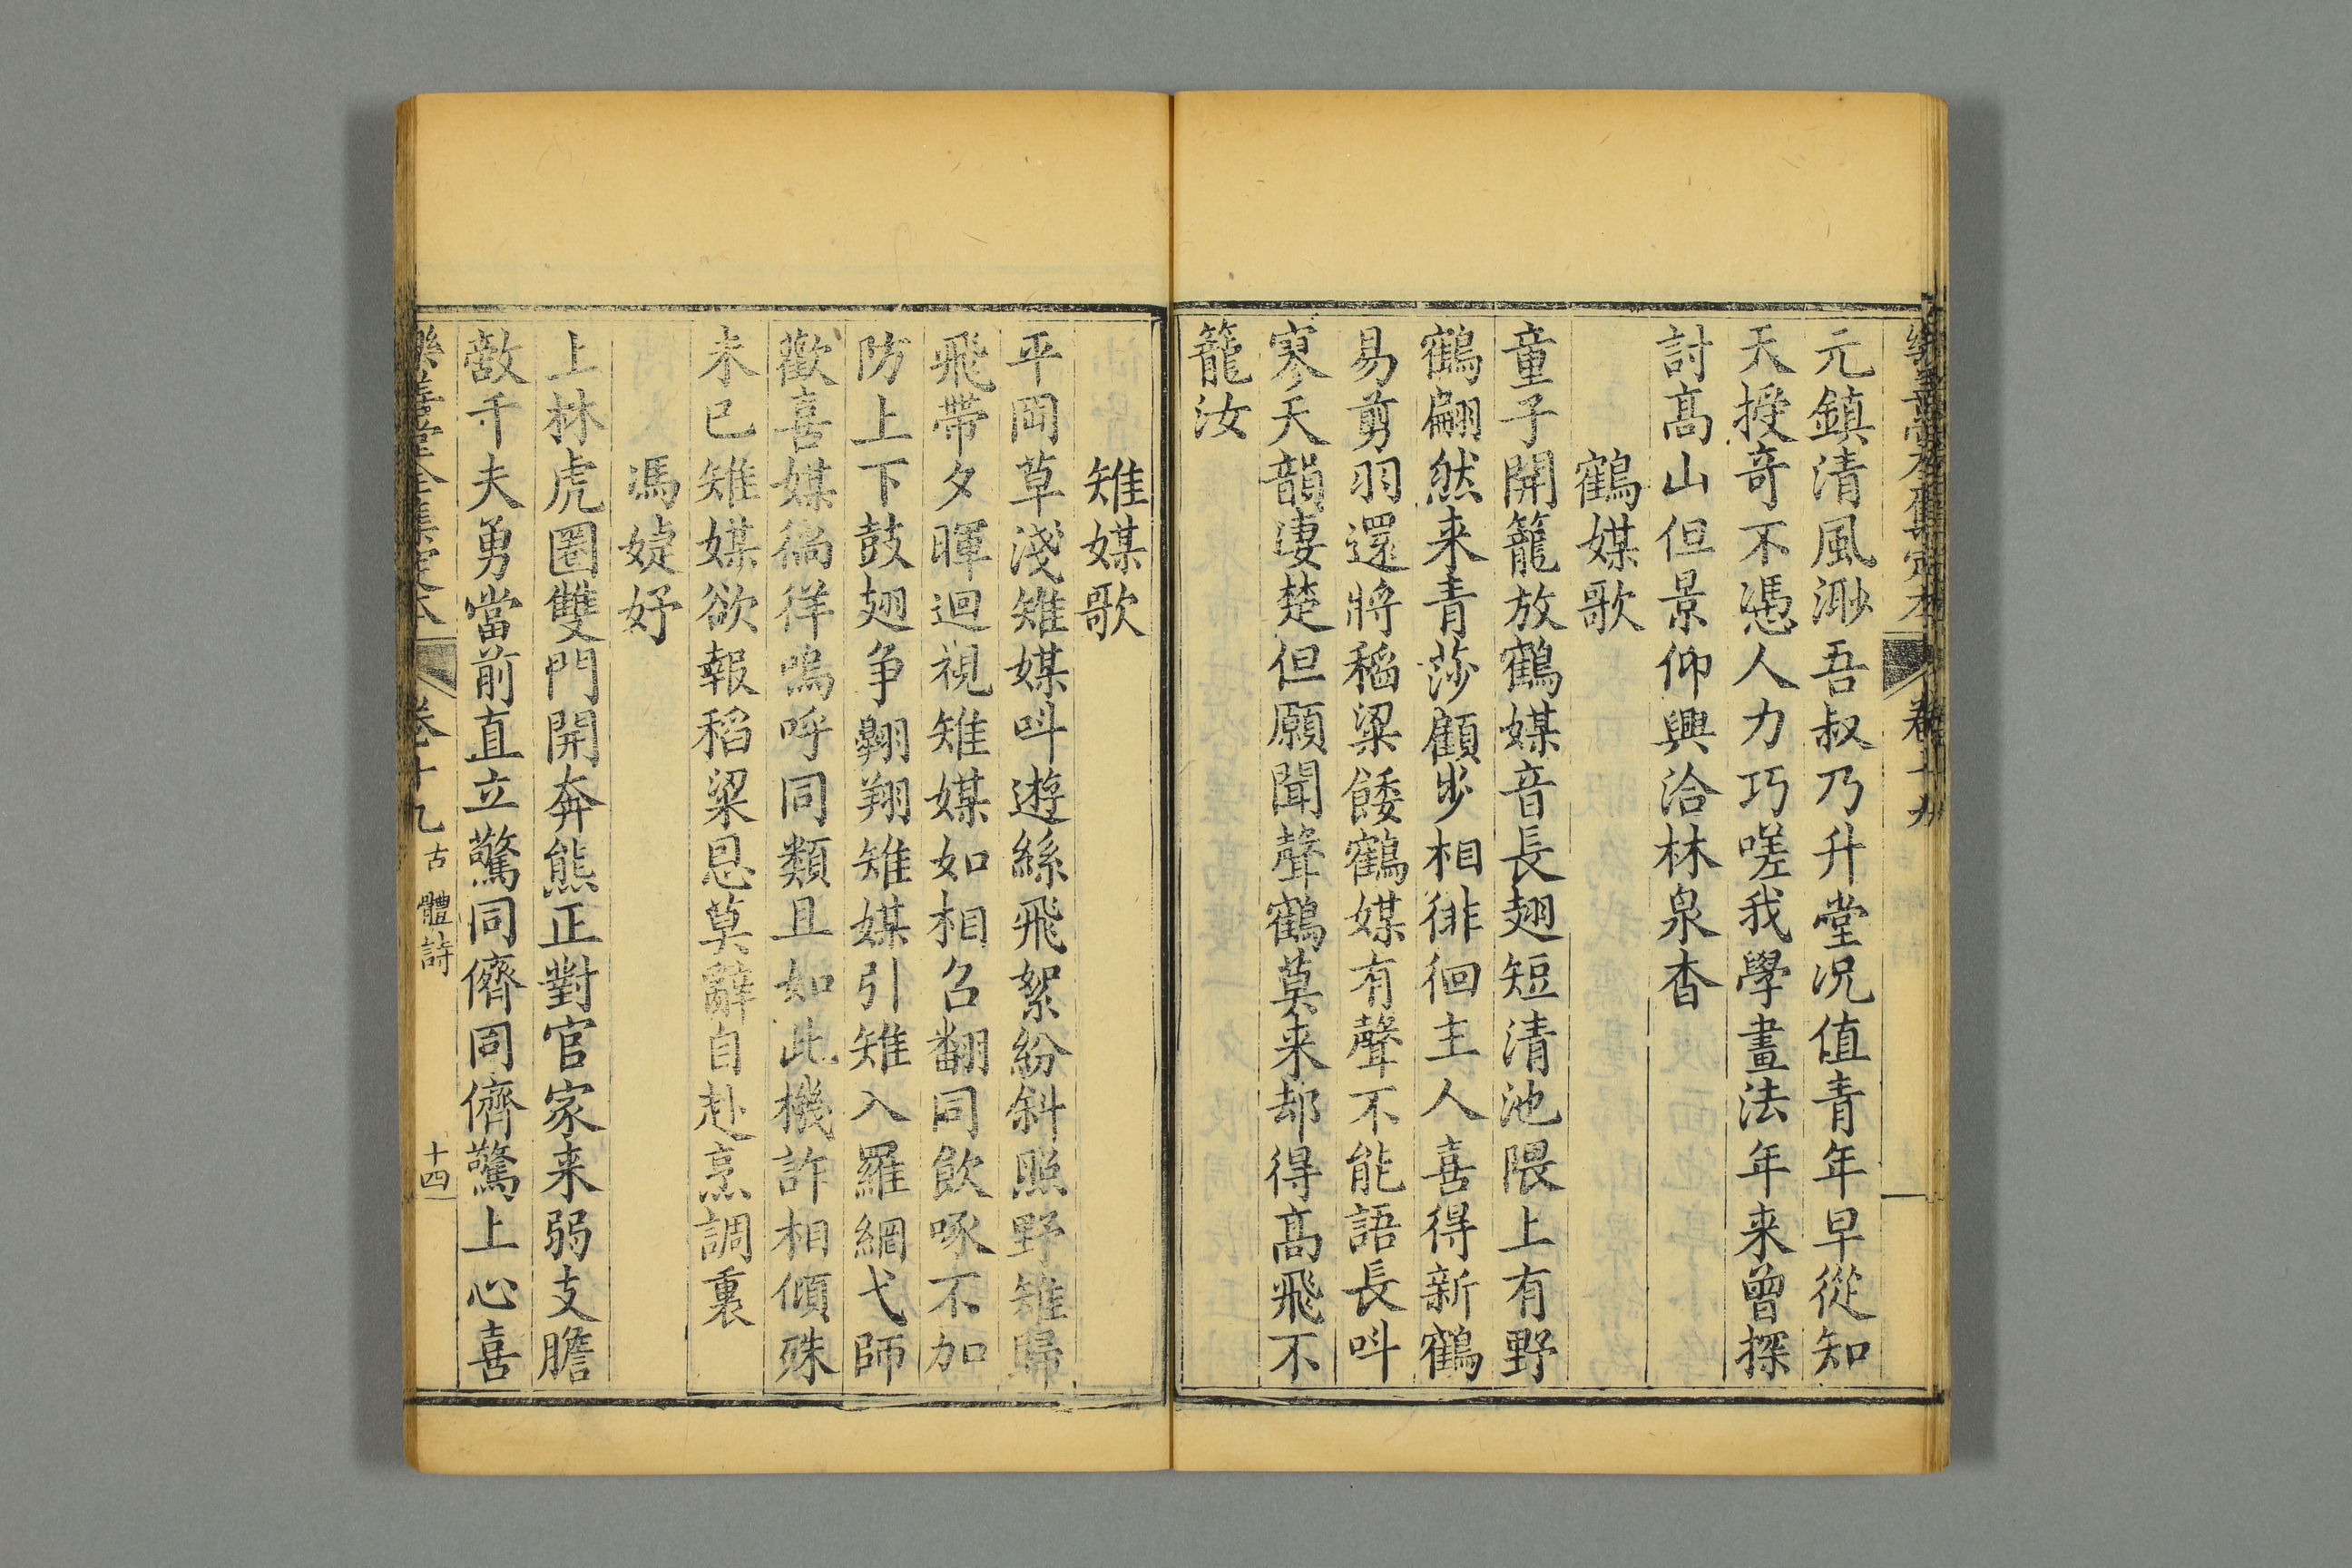 樂善堂全集定本 卷十九
元鎮清風渺吾叔乃升堂况值青年早從知
天授奇不憑人力巧嗟我學畫法年来曾探
討髙山但景仰興洽林泉杳
鶴媒歌
童子開籠放鶴媒音長翅短清池隈上有野
鶴翩然来青莎顧步相徘徊主人喜得新鶴
易剪羽還將稻粱餧鶴媒有聲不能語長呌
寒天韻凄楚但願聞聲鶴莫来却得髙飛不
籠汝
雉媒歌
平岡草淺雉媒呌遊絲飛絮紛斜照野雉歸
飛帶夕暉迴視雉媒如相召翻同飲啄不加
防上下鼓翅争翺翔雉媒引雉入羅網弋師
歡喜媒徜徉嗚呼同類且如此機詐相傾殊
未已雉媒欲報稻粱恩莫辭自赴烹調裏
馮婕妤
上林虎圏雙門開奔熊正對官家来弱支膽
敵千夫勇當前直立驚同儕同儕驚上心喜
樂善堂全集定本 卷十九 古體詩 十四